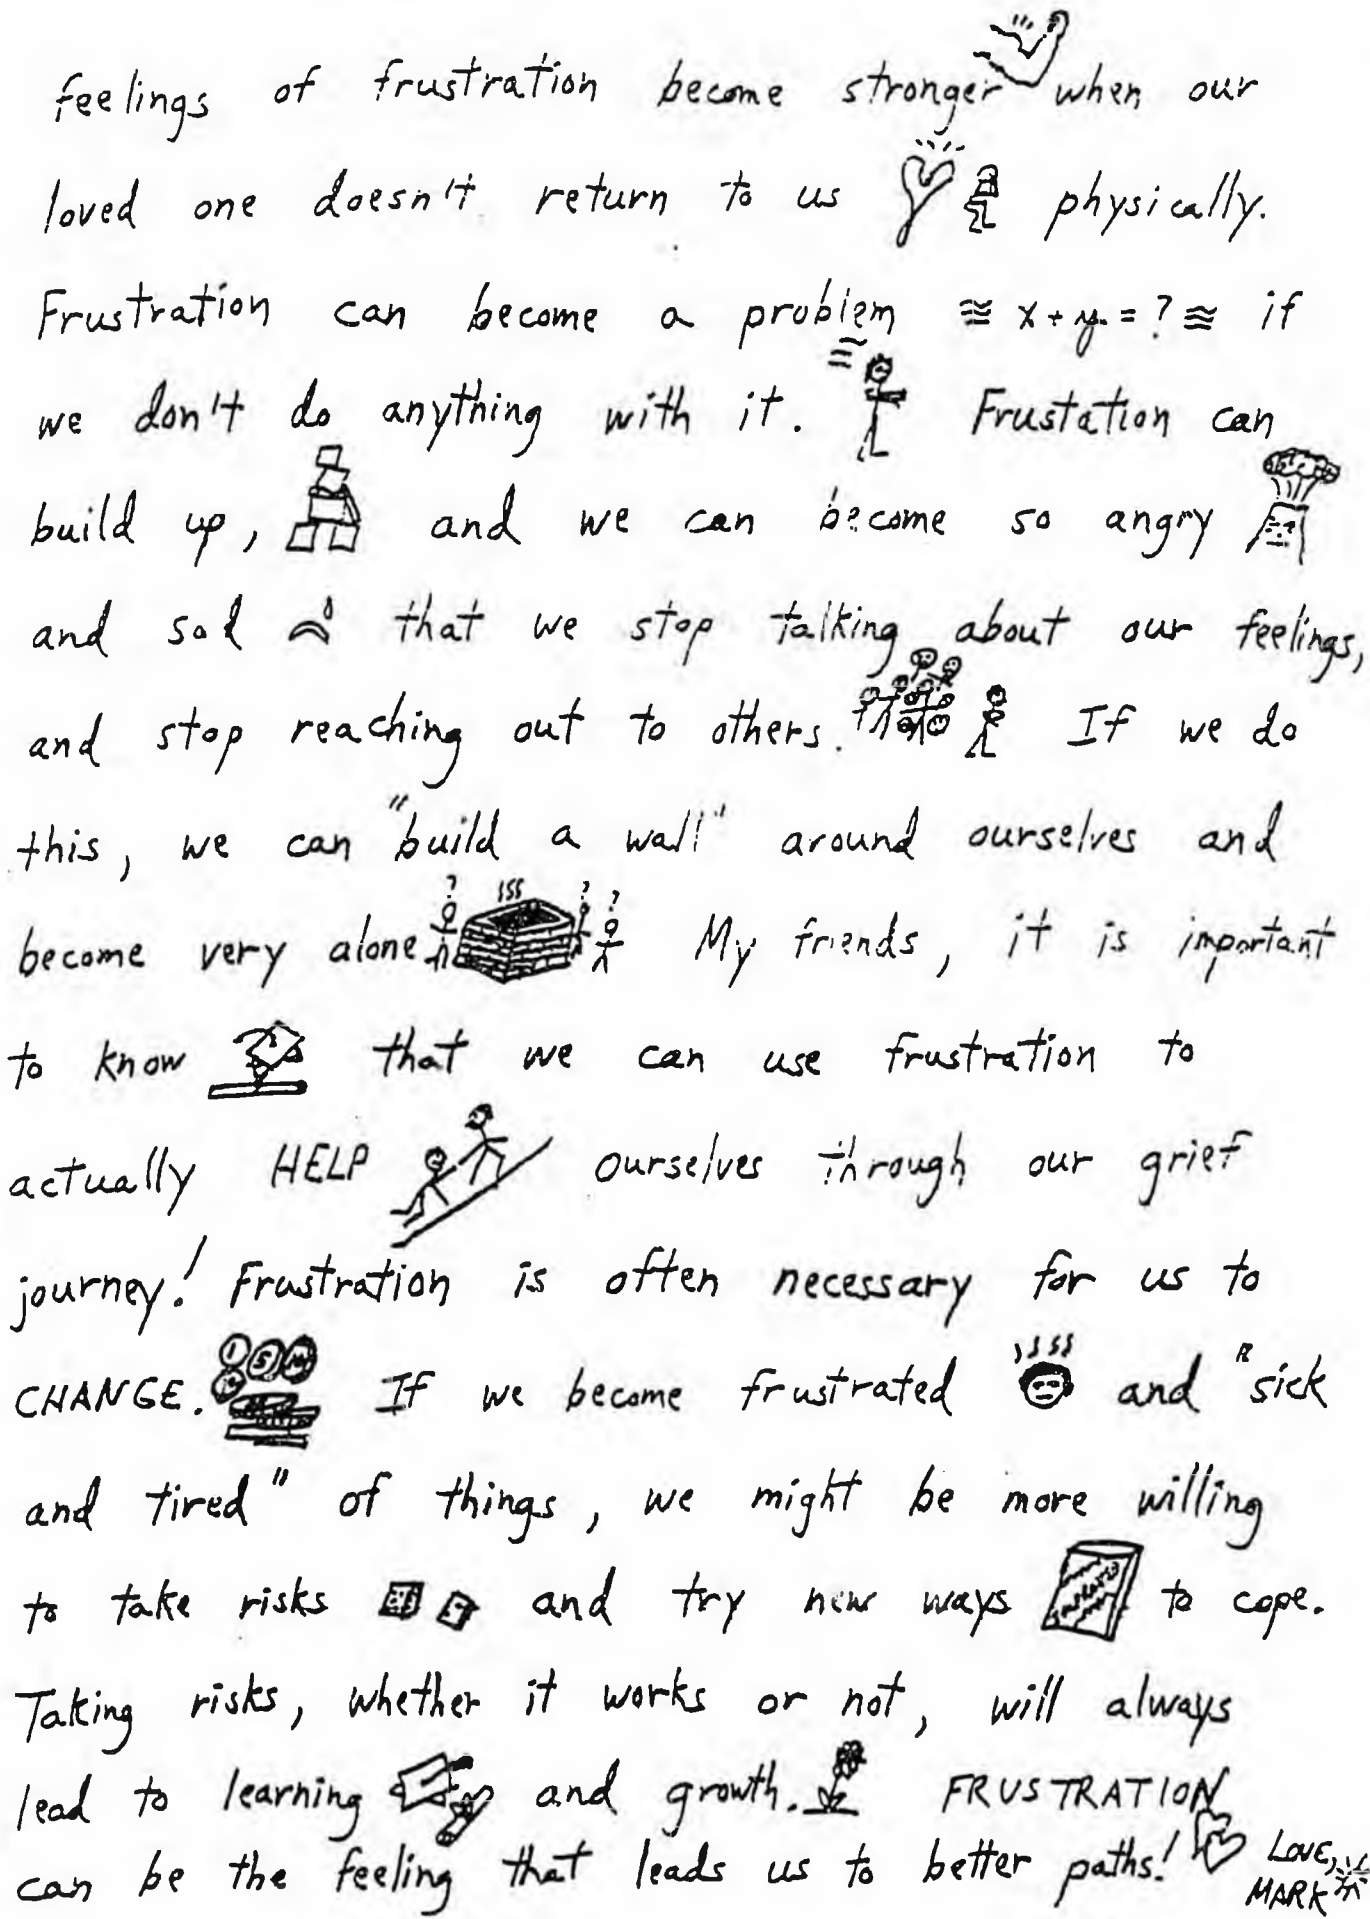 feelings of frustration become stronger when our
loved one doesn't return to us physically.
Frustration can become a problem ≋ x + y = ? ≋ if
we don't do anything with it. Frustation can
build up, and we can become so angry
and sad that we stop talking about our feelings,
and stop reaching out to others. If we do
this, we can "build a wall" around ourselves and
become very alone ? ? ? My friends, it is important
to know that we can use frustration to
actually HELP ourselves through our grief
journey! Frustration is often necessary for us to
CHANGE. If we become frustrated and "sick
and tired" of things, we might be more willing
to take risks and try new ways to cope.
Taking risks, whether it works or not, will always
lead to learning and growth. FRUSTRATION
can be the feeling that leads us to better paths! LOVE,
MARK